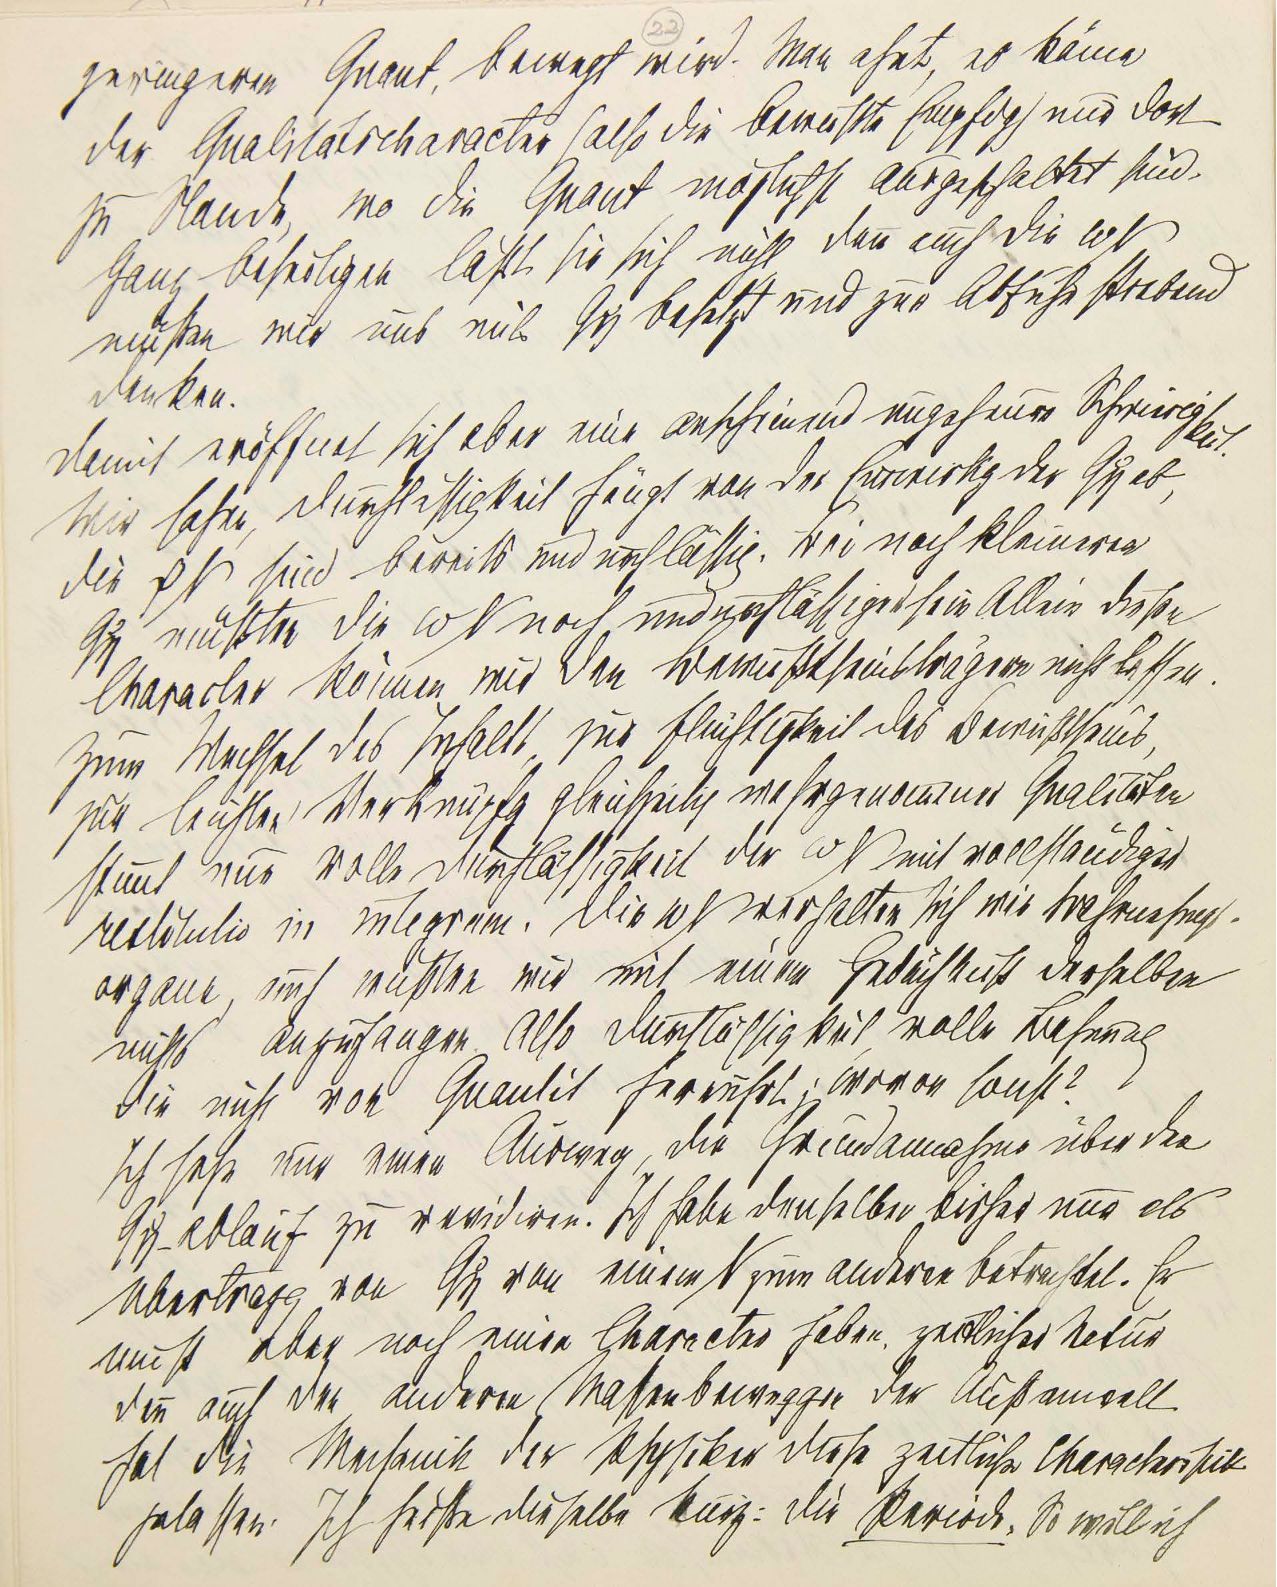 22
geringeren Quant. bewegt wird. Man ahnt, es käme
der Qualitätscharacter (also die bewußte Empfdg) nur dort
zu Stande, wo die Quant möglichst ausgeschaltet sind.
Ganz beseitigen läßt sie sich nicht, deñ auch die ωN
müßen wir uns mit Qη̇ besetzt und zur Abfuhr strebend
denken.
Damit eröffnet sich aber eine anscheinend ungeheure Schwierigkeit.
Wir sahen, Durchlässigkeit hängt von der Einwirkg der Qη̇ ab,
die ψN sind bereits undurchlässig. Bei noch kleinerem
Qη̇ müßten die ωN noch undurchlässiger sein. Allein diesen
Character können wir den Bewußtseinsträgern nicht lassen.
Zum Wechsel des Inhalts, zur Flüchtigkeit des Bewußtseins,
zur leichten Verknüpfg gleichzeitig wahrgenommener Qualitäten
stimmt nur volle Durchlässigkeit der ωN mit vollständiger
restitutio in integrum. Die ωN verhalten sich wie Wahrnehmgs-
organe, auch wüßten wir mit einem Gedächtniß derselben
nichts anzufangen. Also Durchlässigkeit, volle Bahnung
die nicht von Quantit herrührt; wovon sonst?
Ich sehe nur einen Ausweg, die Grundannahme über den
Qη̇-ablauf zu revidiren. Ich habe denselben bisher nur als
Übertragg von Qη̇ von einem N zum anderen betrachtet. Er
muß aber noch einen Character haben, zeitlicher Natur
deñ auch den anderen Massenbeweggen der Außenwelt
hat die Mechanik der Physiker diese zeitliche Characteristik
gelassen. Ich heiße dieselbe kurz: die Periode. So will ich